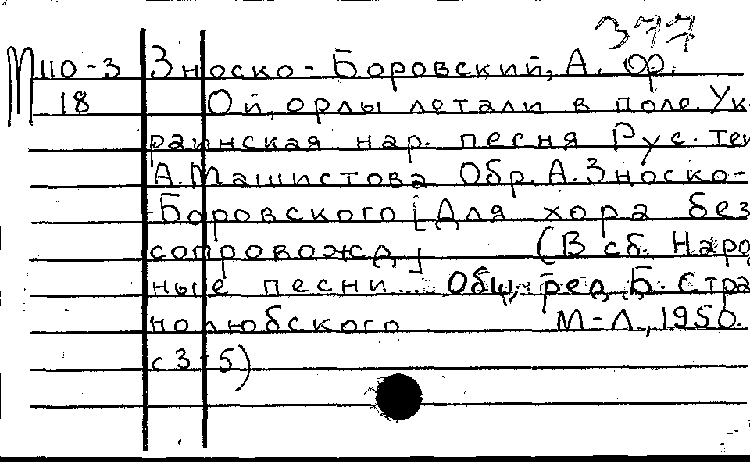 377
М 110-3 Зноско-Боровский, А. ор.
18 Ой, орлы летали в поле. Ук-
раинская нар. песня Рус. тек
А. Машистова Обр. А. Зноско-
Боровского [Для хора без
сопровожд.] (В сб. Наро
ные песни... Общ. ред. Б. Стра
нолюбского М-Л., 1950.
с 3-5)